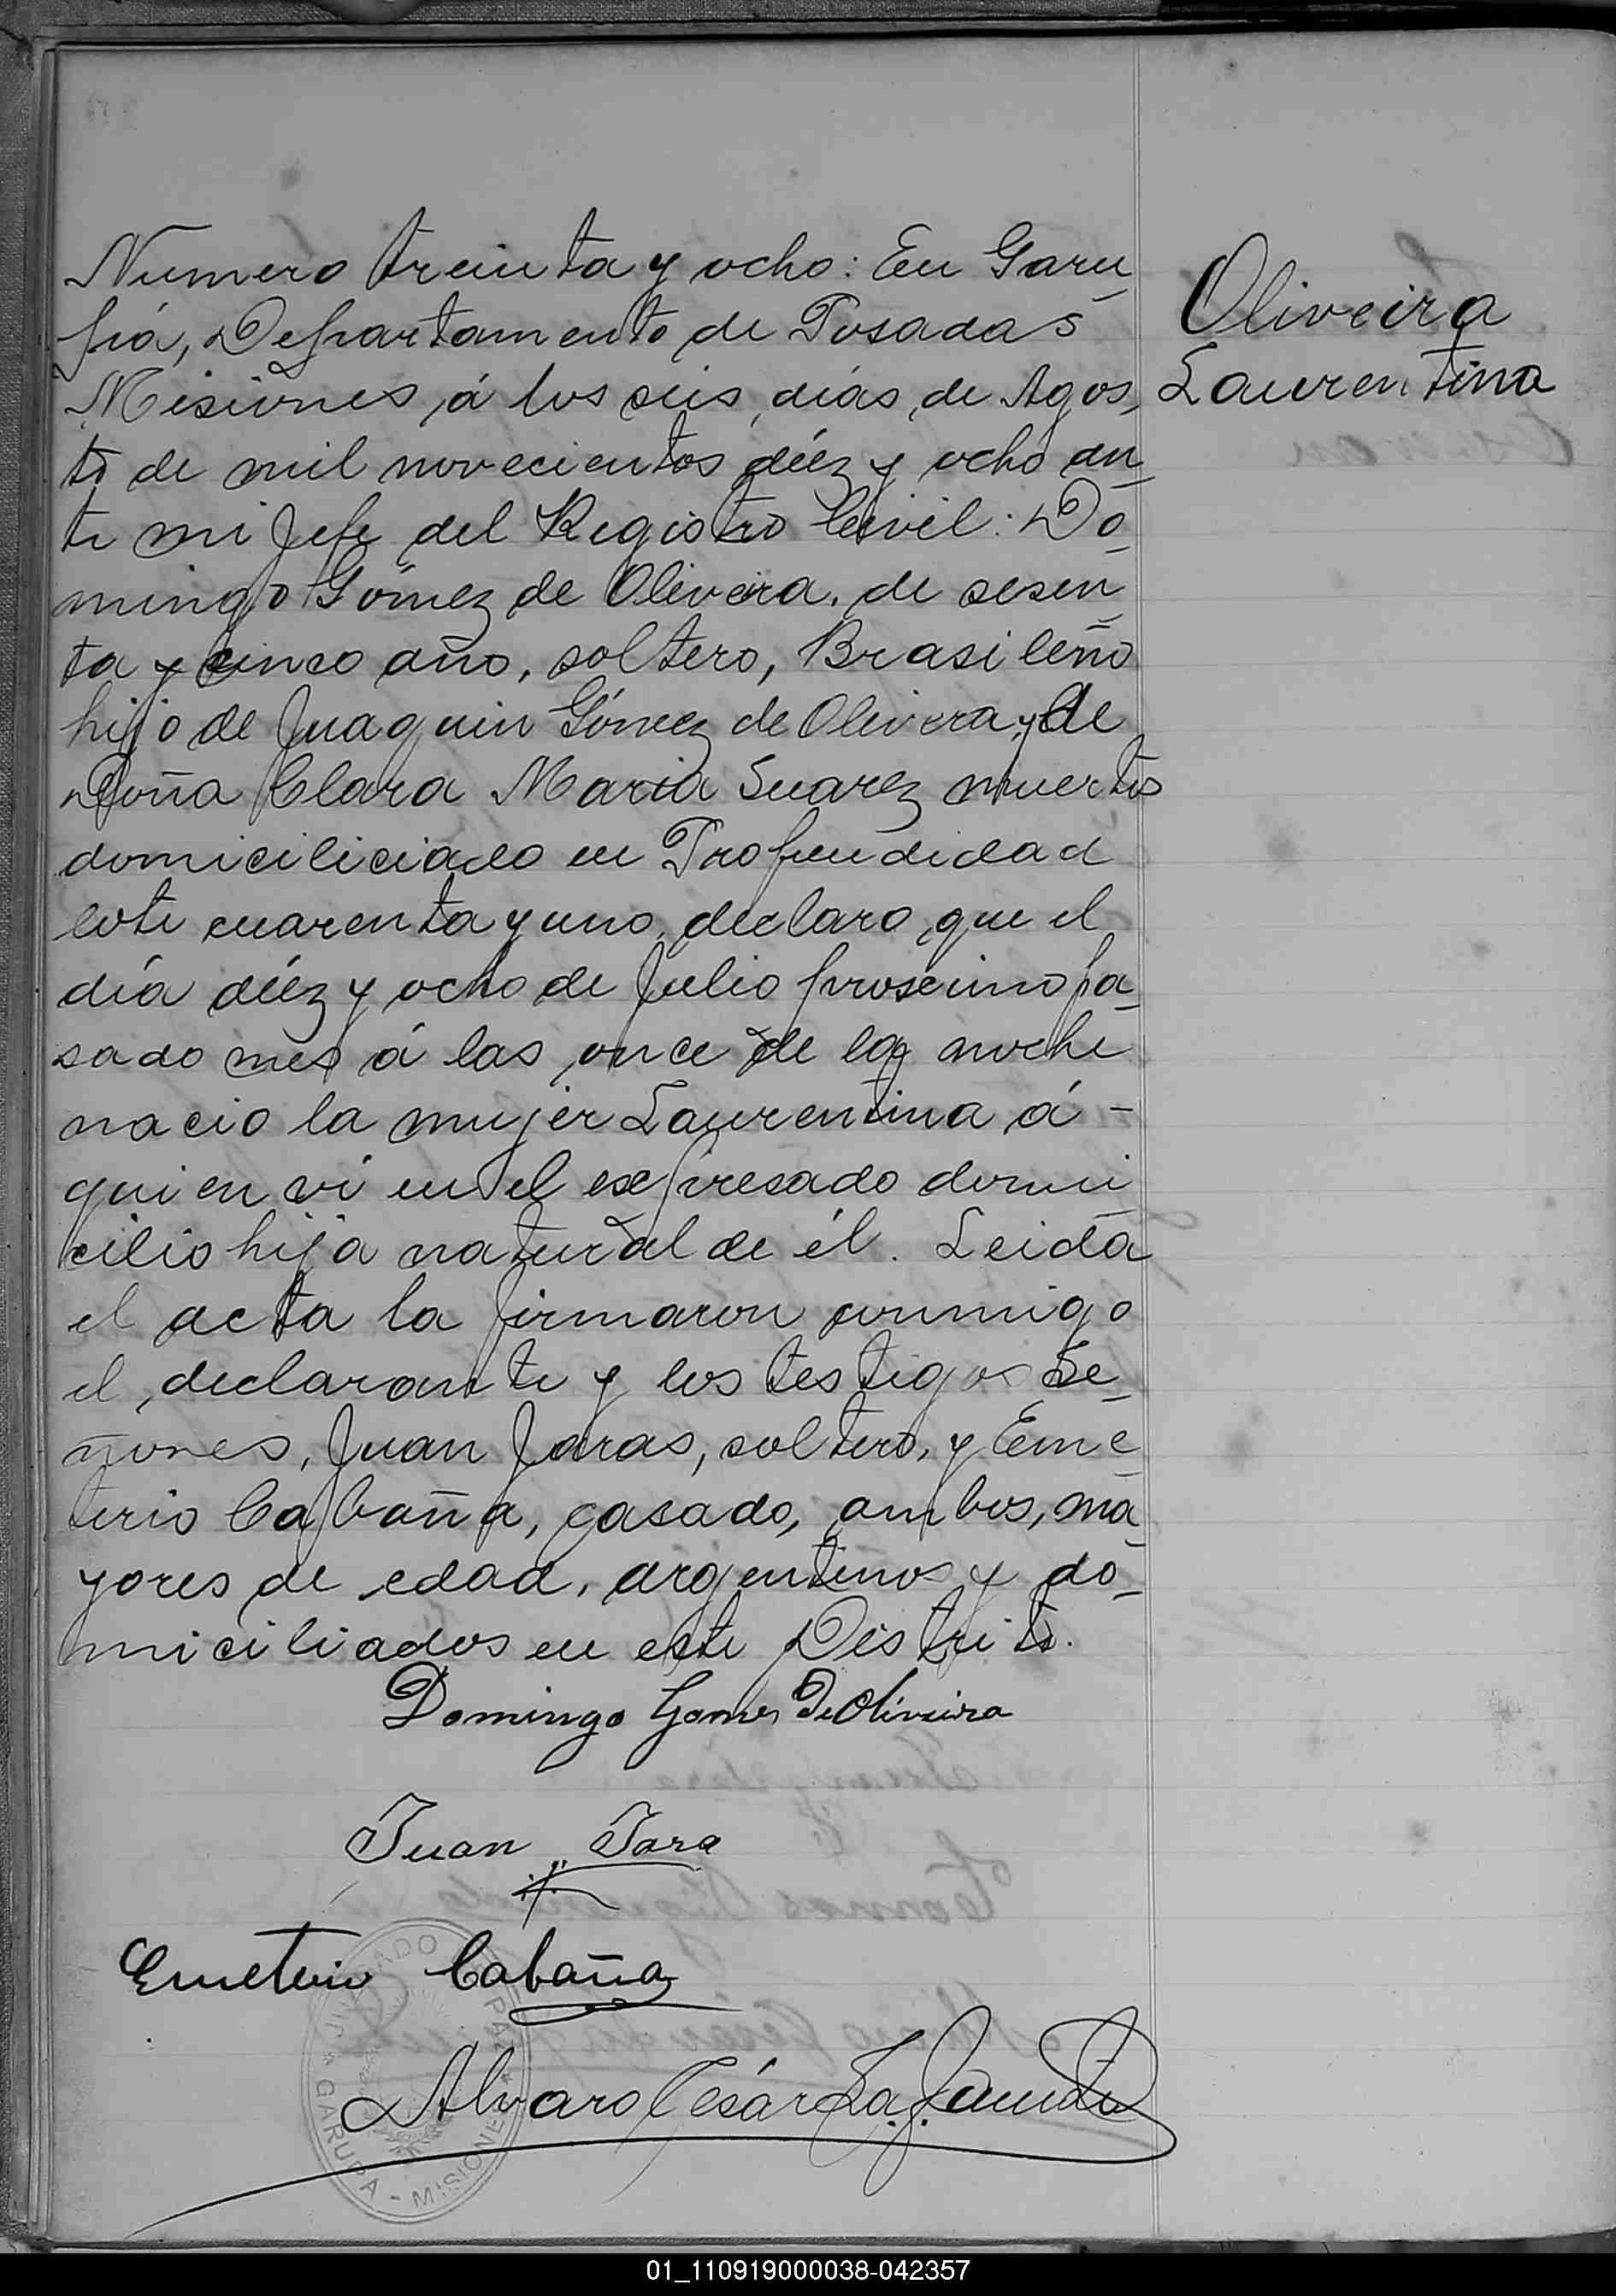 Numero treinta y ocho: En Garu
pá, Departamento de Posadas
Misiones, á los seis, dias, de Agos,
to de mil novecientos diéz y ocho an
te mi Jefe del Registro Civil: Do
mingo Gómez de Olivera, de sesen
ta y cinco año, soltero, Brasileño
hijo de Juaquin Gómez de Olivera, y de
Doña Clara Maria Suarez muertos
domiciliciado en Profundidad
lote cuarenta y uno, declaro, que el
día diéz y ocho de Julio prosximo pa
sado mes á las once de la noche
nacio la mujer Laurentina á -
quien ví en el expresado domi
cilio hija natural de él. Leida
el acta la firmaron conmigo
el declarante y los testigos Se
ñores, Juan Jaras, soltero, y Eme
terio Cabaña, casado, ambos, ma
yores de edad, argentinos y do
miciliados en este Distrito.
Oliveira
Laurentina
Domingo Gomes De Oliveira
Juan Jara
Emeterio Cabaña
Alvaro César
JUZGADO DE PAZ
GARUPA - MISIONES
01_110919000038-042357